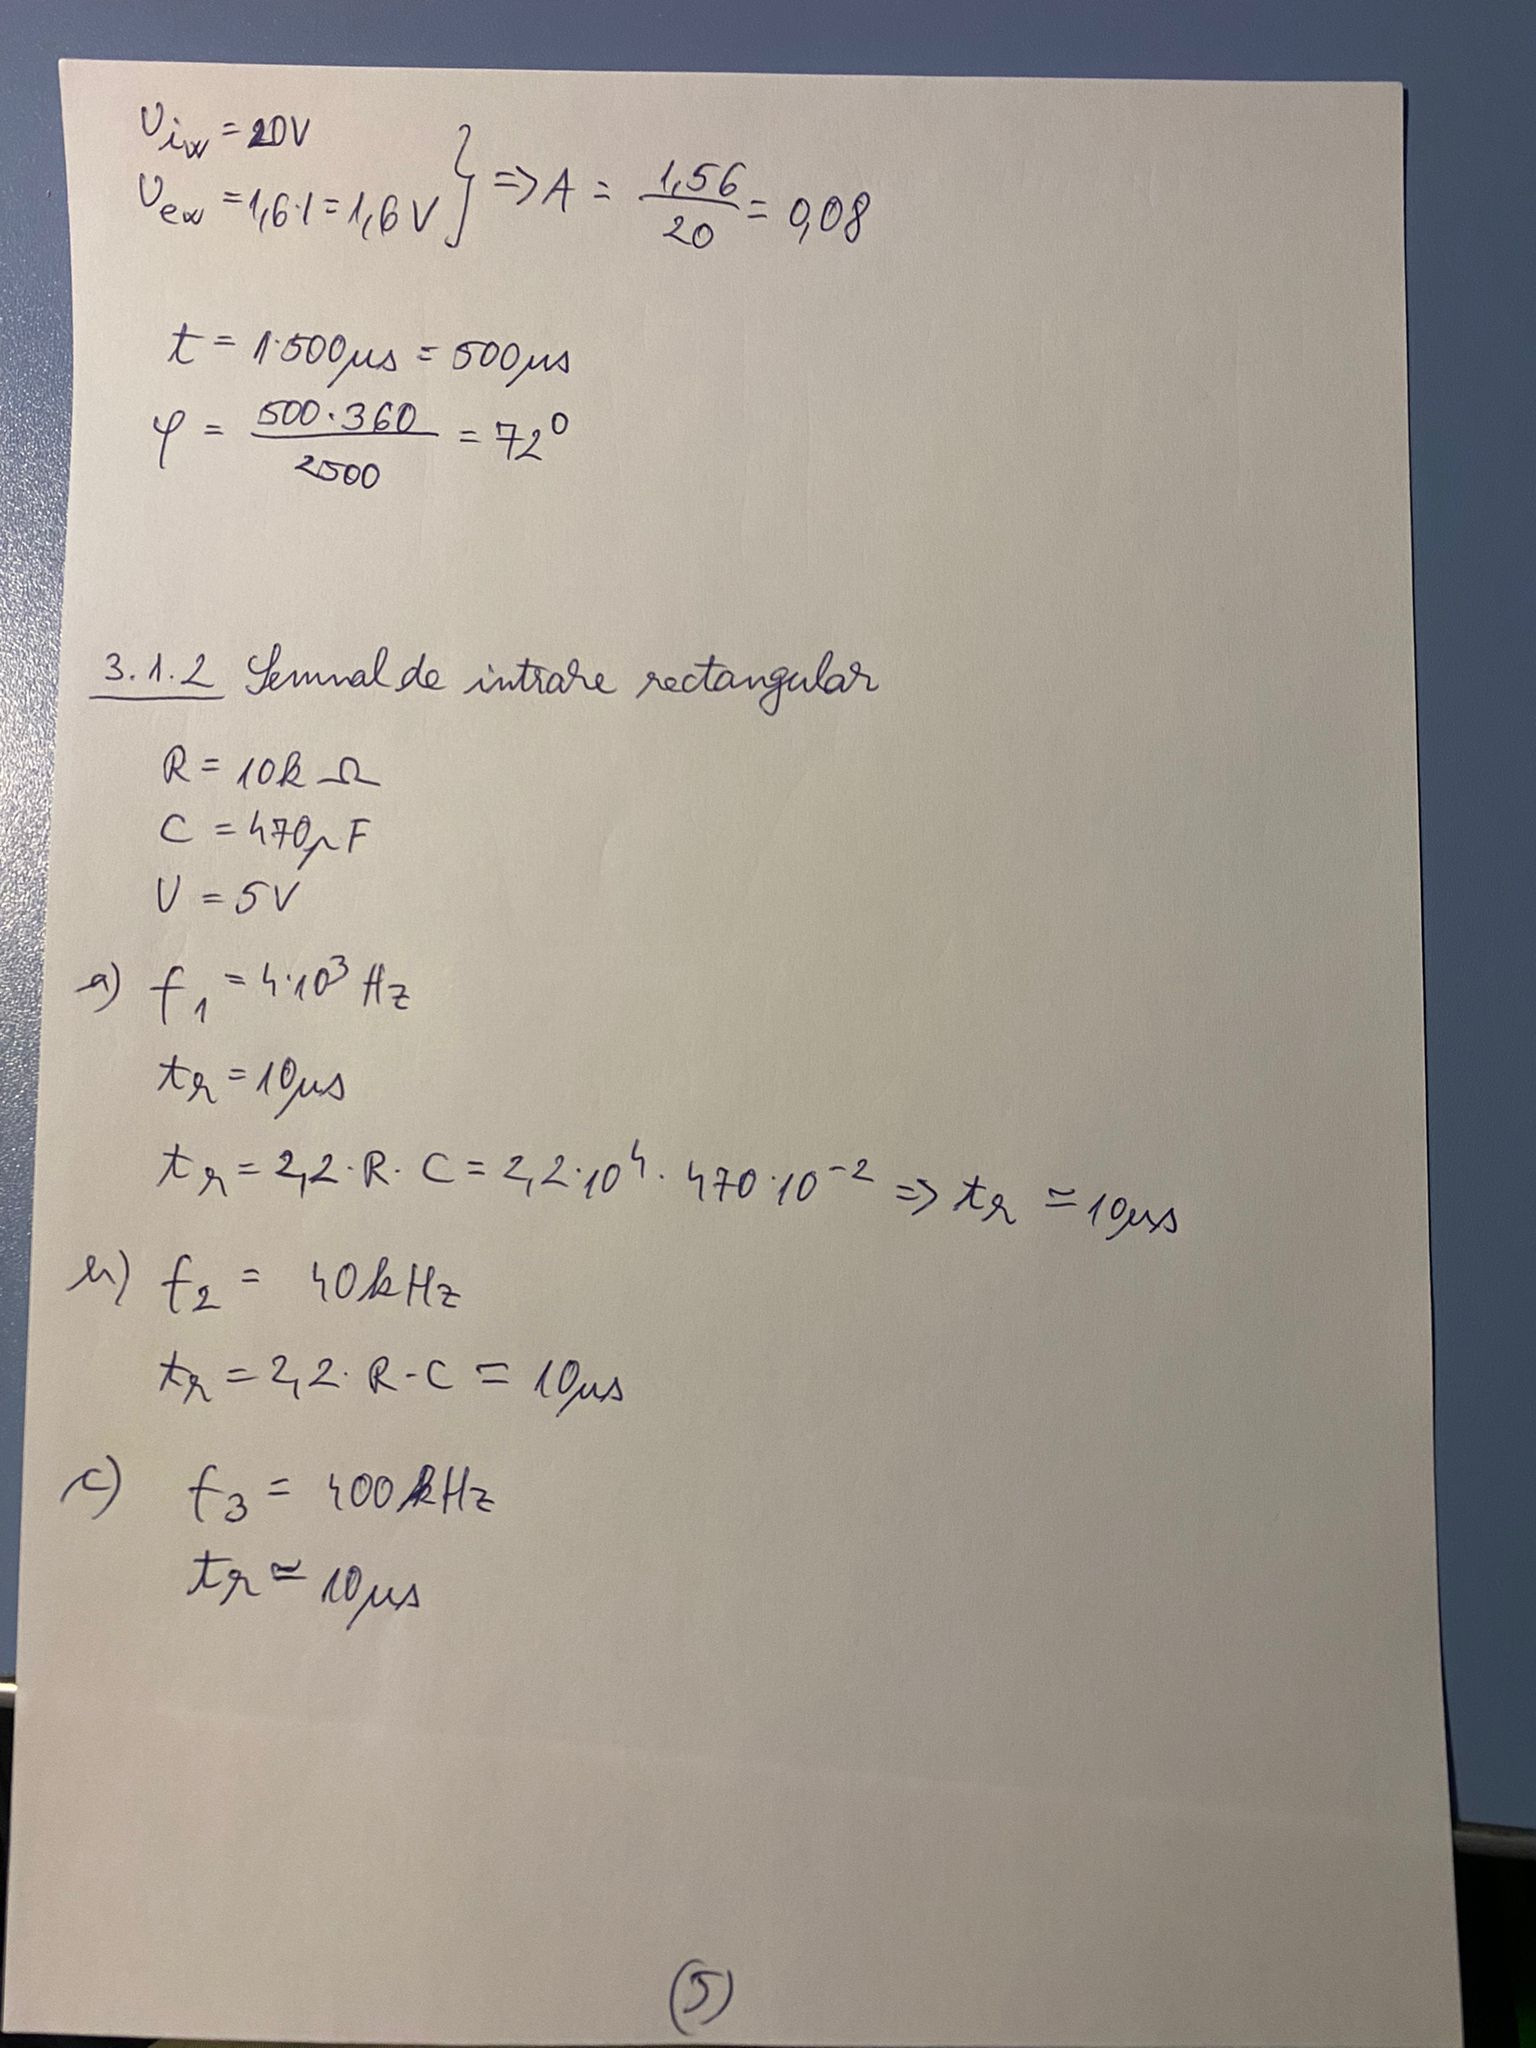 Uivv = 20V
Uevv = 1,6·1 = 1,6V } => A = 1,56/20 = 0,08
t = 1·500μs = 500μs
φ = 500·360/2500 = 72°
3.1.2 Semnal de intrare rectangular
R = 10kΩ
C = 470pF
U = 5V
a) f1 = 4·10³ Hz
tr = 10μs
tr = 2,2·R·C = 2,2·10⁴·470·10⁻² => tr ≃ 10μs
b) f2 = 40kHz
tr = 2,2·R·C = 10μs
c) f3 = 400kHz
tr ≃ 10μs
(5)